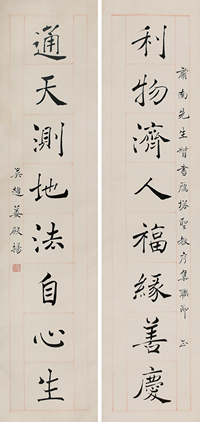 肅南先生督書雁塔聖教序集聯即 正
利物濟人福緣善慶
通天測地法自心生
吳趨姜殿揚